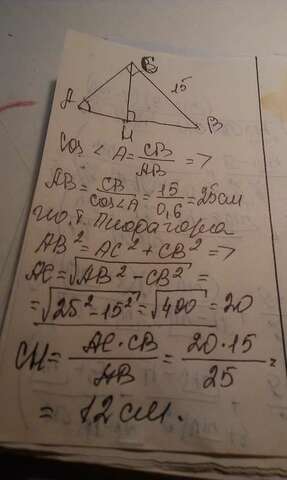 C
15
A
H
B
Cos < A = CB / AB =>
AB = CB / cos<A = 15 / 0,6 = 25см
по т. Пифагора
AB² = AC² + CB² =>
AC = √AB² - CB² =
= √25² - 15² = √400 = 20
CH = AC · CB / AB = 20 · 15 / 25 =
= 12 см.